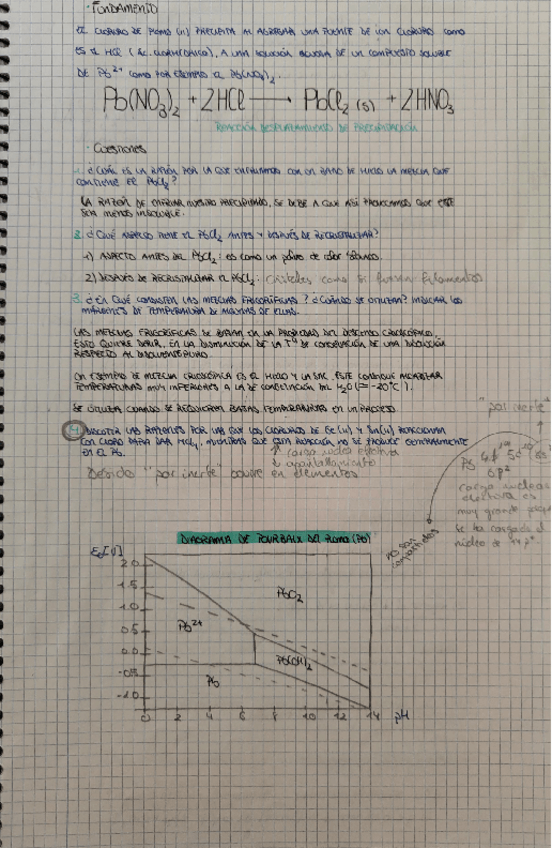 · FUNDAMENTO
EL CLORURO DE PLOMO (II) PRECIPITA AL AGREGAR UNA FUENTE DE ION CLORURO COMO
ES EL HCl (ÁC. CLORHÍDRICO), A UNA SOLUCIÓN ACUOSA DE UN COMPUESTO SOLUBLE
DE Pb²⁺ COMO POR EJEMPLO EL Pb(NO₃)₂.
Pb(NO₃)₂ + 2HCl ⟶ PbCl₂ (s) + 2HNO₃
REACCIÓN DESPLAZAMIENTO DE PRECIPITACIÓN
· Cuestiones
1. ¿CUÁL ES LA RAZÓN POR LA QUE ENFRIAMOS CON UN BAÑO DE HIELO LA MEZCLA QUE
CONTIENE EL PbCl₂?
LA RAZÓN DE ENFRIAR NUESTRO PRECIPITADO, SE DEBE A QUE ASÍ PROVOCAMOS QUE ESTE
SEA MENOS INSOLUBLE.
2. ¿QUÉ ASPECTO TIENE EL PbCl₂ ANTES Y DESPUÉS DE RECRISTALIZAR?
1) ASPECTO ANTES DEL PbCl₂: ES COMO UN POLVO DE COLOR BLANCO.
2) DESPUÉS DE RECRISTALIZAR EL PbCl₂: cristales como si fueran filamentos
3. ¿EN QUÉ CONSISTEN LAS MEZCLAS FRIGORÍFICAS? ¿CUÁNDO SE UTILIZAN? INDICAR LOS
DE TEMPERATURA DE ALGUNAS DE ELLAS.
LAS MEZCLAS FRIGORÍFICAS SE BASAN EN LA PROPIEDAD DEL DESCENSO CRIOSCÓPICO.
ESTO QUIERE DECIR, EN LA DISMINUCIÓN DE LA Tª DE CONGELACIÓN DE UNA DISOLUCIÓN
RESPECTO AL DISOLVENTE PURO.
UN EJEMPLO DE MEZCLA CRIOSCÓPICA ES EL HIELO Y LA SAL. ESTE CONSIGUE ALCANZAR
TEMPERATURAS MUY INFERIORES A LA DE CONGELACIÓN DEL H₂O (≈ -20°C).
SE UTILIZA CUANDO SE REQUIEREN BAJAS TEMPERATURAS EN UN PROCESO
4. LAS RAZONES POR LAS QUE LOS CLORUROS DE Ge(II) Y Sn(II) REACCIONAN
CON CLORO PARA DAR MCl₄, MIENTRAS QUE ESTA REACCIÓN NO SE PRODUCE
EN EL Pb.
↑ carga nuclear efectiva
↓ apantallamiento
Debido "par inerte" ocurre en elementos
"par inerte"
6p²
carga nuclear
efectiva es
muy grande
se ha cargado el
núcleo de
no son
compartidos
DIAGRAMA DE POURBAIX DEL PLOMO (Pb)
E₀[V]
2.0
1.5
1.0
0.5
0.0
-0.5
-1.0
PbO₂
Pb²⁺
Pb(OH)₂
Pb
0 2 4 6 8 10 12 14 pH